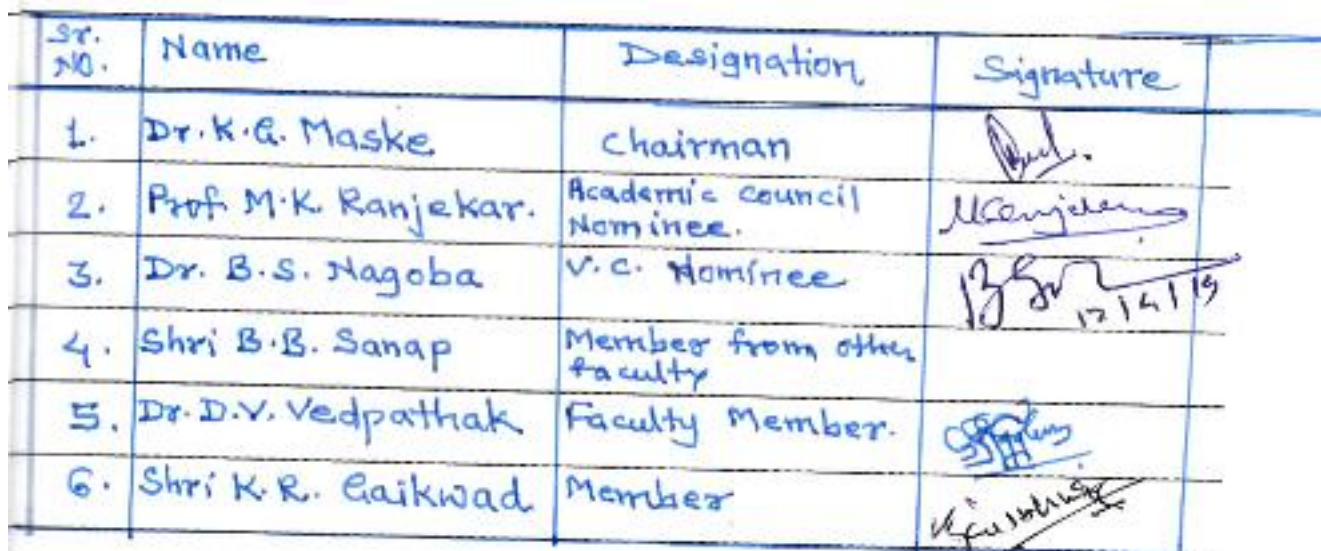 Sr. No. Name Designation Signature
1. Dr. K.G. Maske Chairman
2. Prof. M.K. Ranjekar. Academic Council Nominee.
3. Dr. B.S. Nagoba V.C. Nominee
4. Shri B.B. Sanap Member from other faculty
5. Dr. D.V. Vedpathak Faculty Member.
6. Shri K.R. Gaikwad Member